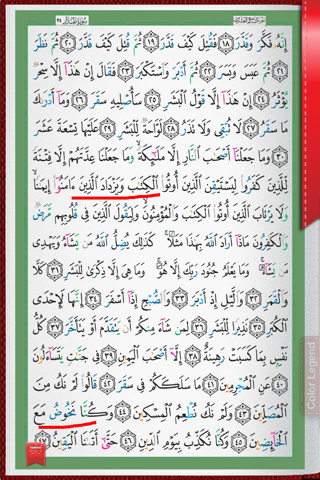 إِنَّهُۥ فَكَّرَ وَقَدَّرَ ١٨ فَقُتِلَ كَيْفَ قَدَّرَ ١٩ ثُمَّ قُتِلَ كَيْفَ قَدَّرَ ٢٠ ثُمَّ نَظَرَ
٢١ ثُمَّ عَبَسَ وَبَسَرَ ٢٢ ثُمَّ أَدْبَرَ وَٱسْتَكْبَرَ ٢٣ فَقَالَ إِنْ هَٰذَآ إِلَّا سِحْرٌ
يُؤْثَرُ ٢٤ إِنْ هَٰذَآ إِلَّا قَوْلُ ٱلْبَشَرِ ٢٥ سَأُصْلِيهِ سَقَرَ ٢٦ وَمَآ أَدْرَىٰكَ
مَا سَقَرُ ٢٧ لَا تُبْقِى وَلَا تَذَرُ ٢٨ لَوَّاحَةٌ لِّلْبَشَرِ ٢٩ عَلَيْهَا تِسْعَةَ عَشَرَ
٣٠ وَمَا جَعَلْنَآ أَصْحَٰبَ ٱلنَّارِ إِلَّا مَلَٰٓئِكَةً ۙ وَمَا جَعَلْنَا عِدَّتَهُمْ إِلَّا فِتْنَةً
لِّلَّذِينَ كَفَرُوا۟ لِيَسْتَيْقِنَ ٱلَّذِينَ أُوتُوا۟ ٱلْكِتَٰبَ وَيَزْدَادَ ٱلَّذِينَ ءَامَنُوٓا۟ إِيمَٰنًا ۙ
وَلَا يَرْتَابَ ٱلَّذِينَ أُوتُوا۟ ٱلْكِتَٰبَ وَٱلْمُؤْمِنُونَ ۙ وَلِيَقُولَ ٱلَّذِينَ فِى قُلُوبِهِم مَّرَضٌ
وَٱلْكَٰفِرُونَ مَاذَآ أَرَادَ ٱللَّهُ بِهَٰذَا مَثَلًا ۚ كَذَٰلِكَ يُضِلُّ ٱللَّهُ مَن يَشَآءُ وَيَهْدِى
مَن يَشَآءُ ۚ وَمَا يَعْلَمُ جُنُودَ رَبِّكَ إِلَّا هُوَ ۚ وَمَا هِىَ إِلَّا ذِكْرَىٰ لِلْبَشَرِ ٣١ كَلَّا
وَٱلْقَمَرِ ٣٢ وَٱلَّيْلِ إِذْ أَدْبَرَ ٣٣ وَٱلصُّبْحِ إِذَآ أَسْفَرَ ٣٤ إِنَّهَا لَإِحْدَى
ٱلْكُبَرِ ٣٥ نَذِيرًا لِّلْبَشَرِ ٣٦ لِمَن شَآءَ مِنكُمْ أَن يَتَقَدَّمَ أَوْ يَتَأَخَّرَ ٣٧ كُلُّ
نَفْسٍۭ بِمَا كَسَبَتْ رَهِينَةٌ ٣٨ إِلَّآ أَصْحَٰبَ ٱلْيَمِينِ ٣٩ فِى جَنَّٰتٍ يَتَسَآءَلُونَ
٤٠ عَنِ ٱلْمُجْرِمِينَ ٤١ مَا سَلَكَكُمْ فِى سَقَرَ ٤٢ قَالُوا۟ لَمْ نَكُ مِنَ
ٱلْمُصَلِّينَ ٤٣ وَلَمْ نَكُ نُطْعِمُ ٱلْمِسْكِينَ ٤٤ وَكُنَّا نَخُوضُ مَعَ
ٱلْخَآئِضِينَ ٤٥ وَكُنَّا نُكَذِّبُ بِيَوْمِ ٱلدِّينِ ٤٦ حَتَّىٰٓ أَتَىٰنَا ٱلْيَقِينُ ٤٧
Color Legend